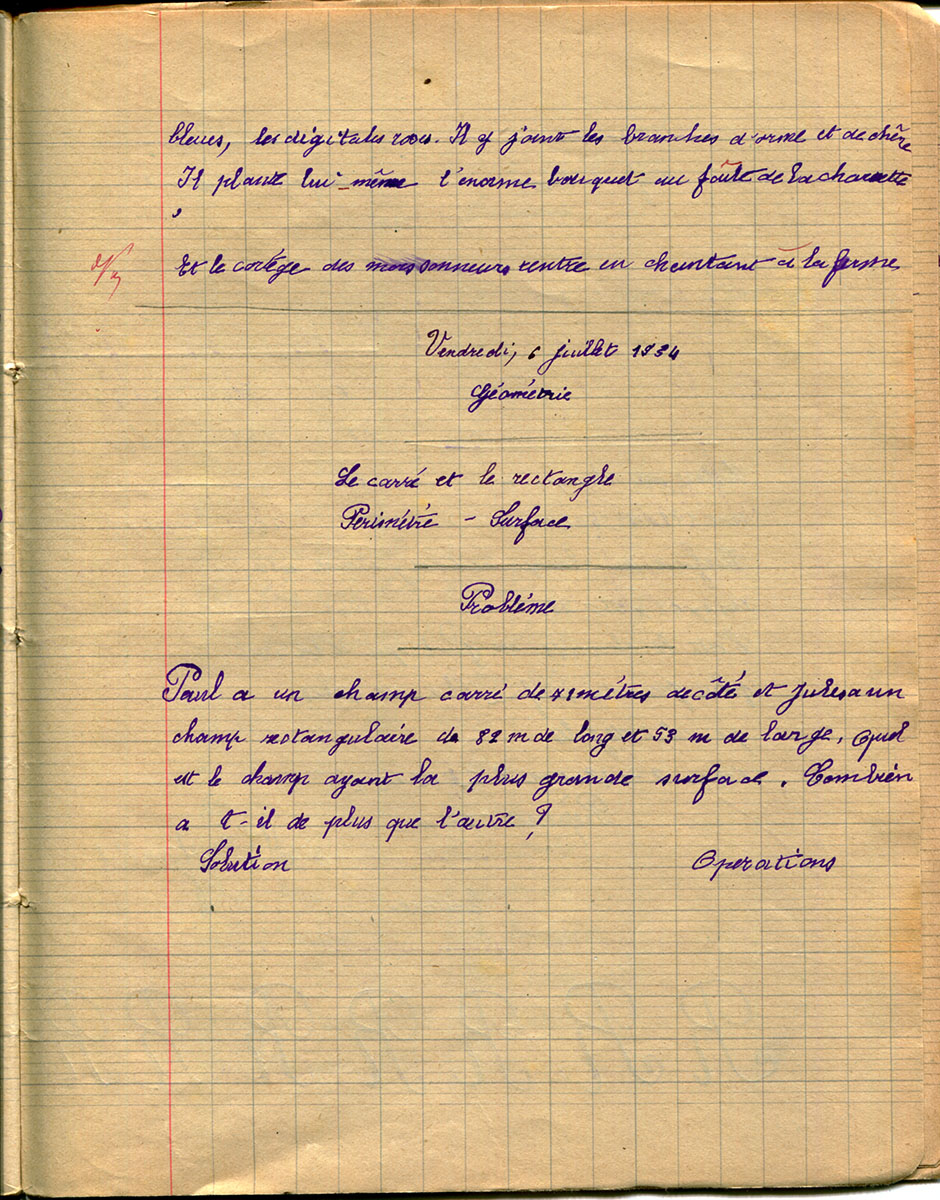 bleues, les digitales roses. Il y joint les branches d'orme et de chêne
Il plante lui-même l'énorme bouquet au faîte de la charrette
Et le cortège des moissonneurs rentre en chantant à la ferme
Vendredi, 6 juillet 1934
Géométrie
Le carré et le rectangle
Perimétré - Surface
Probléme
Paul a un champ carré de 71 métres de côté et Jules a un
champ rectangulaire de 82 m de long et 53 m de large. Quel
est le champ ayant la plus grande surface. Combien
a t-il de plus que l'autre ?
Solution Operations